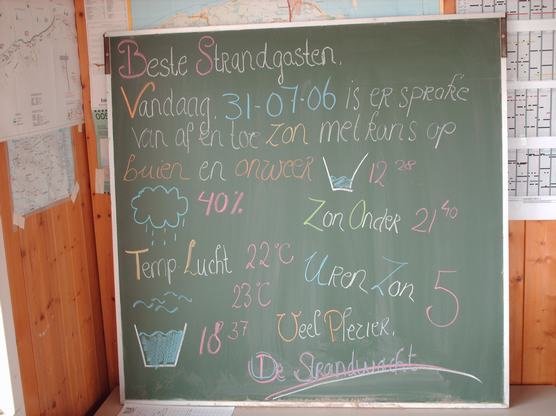 Beste Strandgasten,
Vandaag, 31-07-06 is er sprake
van af en toe zon met kans op
buien en onweer 12 28
40% Zon Onder 21 40
Temp Lucht 22°C Uren Zon 5
23°C
18 37 Veel Plezier,
De Strandwacht